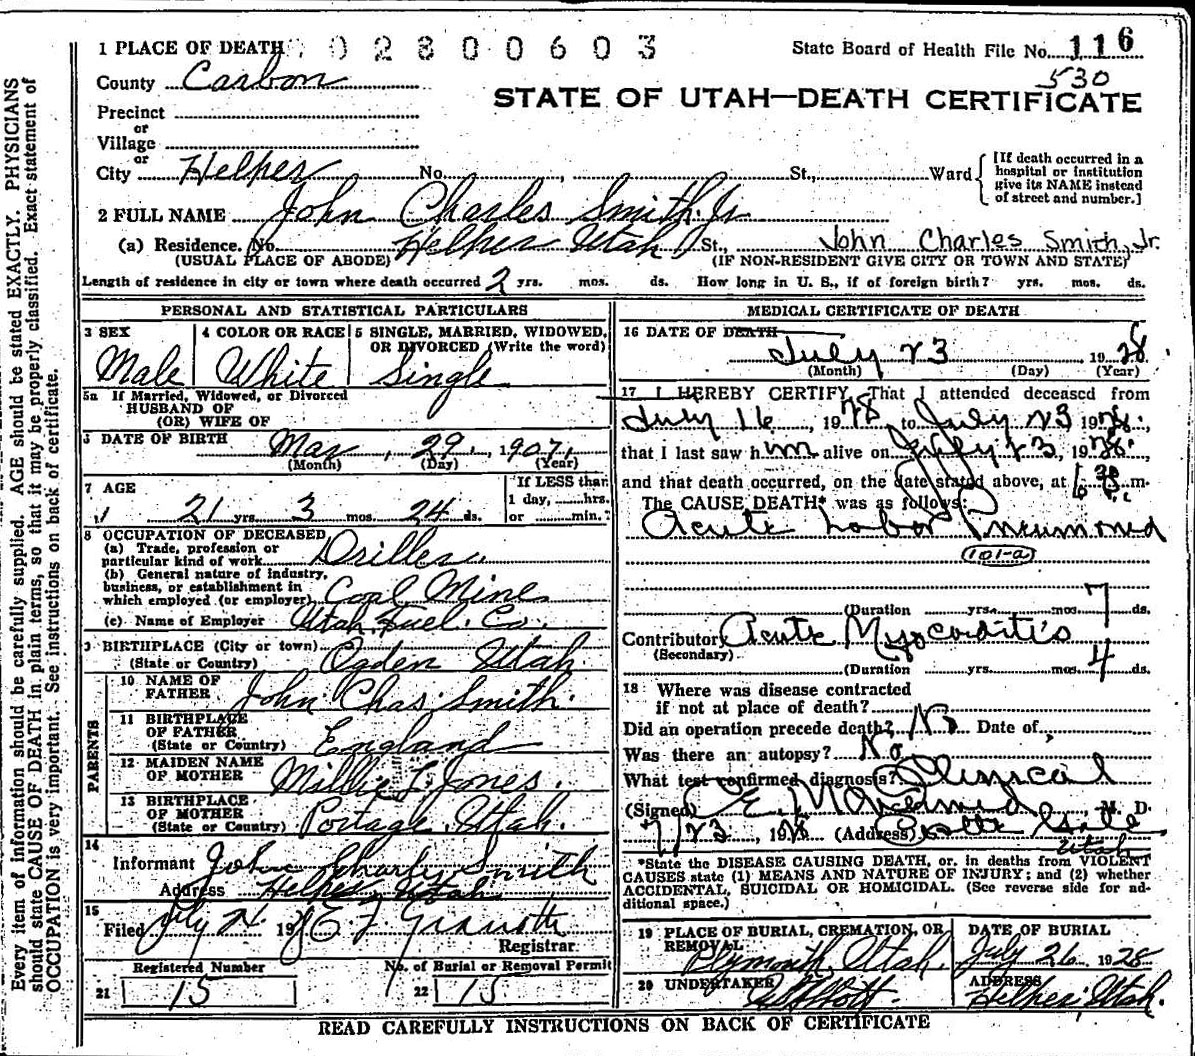 1 PLACE OF DEATH 0 2 8 0 0 6 0 3 State Board of Health File No. 116
County Carbon 530
STATE OF UTAH—DEATH CERTIFICATE
Precinct
or
Village
or
City Helper No. , St., Ward [If death occurred in a hospital or institution give its NAME instead of street and number.]
2 FULL NAME John Charles Smith Jr
(a) Residence. No. Helper Utah St., John Charles Smith, Jr.
(USUAL PLACE OF ABODE) (IF NON-RESIDENT GIVE CITY OR TOWN AND STATE)
Length of residence in city or town where death occurred 2 yrs. mos. ds. How long in U. S., if of foreign birth? yrs. mos. ds.
PERSONAL AND STATISTICAL PARTICULARS
3 SEX 4 COLOR OR RACE 5 SINGLE, MARRIED, WIDOWED, OR DIVORCED (Write the word)
Male White Single
5a If Married, Widowed, or Divorced
HUSBAND OF
(OR) WIFE OF
6 DATE OF BIRTH Mar 29, 1907
(Month) (Day) (Year)
7 AGE If LESS than
1 day, hrs.
21 yrs. 3 mos. 24 ds. or min.?
8 OCCUPATION OF DECEASED
(a) Trade, profession or
particular kind of work Driller
(b) General nature of industry,
business, or establishment in
which employed (or employer) Coal Mine
(c) Name of Employer Utah Fuel Co.
9 BIRTHPLACE (City or town)
(State or Country) Ogden Utah
PARENTS
10 NAME OF
FATHER John Chas. Smith.
11 BIRTHPLACE
OF FATHER
(State or Country) England
12 MAIDEN NAME
OF MOTHER Millie L. Jones.
13 BIRTHPLACE
OF MOTHER
(State or Country) Portage, Utah.
14
Informant John Charley Smith
Address Helper, Utah
15
Filed July 26 1928
Registrar
Registered Number No. of Burial or Removal Permit
21 15 22 15
MEDICAL CERTIFICATE OF DEATH
16 DATE OF DEATH
July 23 1928
(Month) (Day) (Year)
17 I HEREBY CERTIFY, That I attended deceased from
July 16, 1928, to July 23 1928,
that I last saw him alive on July 23, 1928,
and that death occurred, on the date stated above, at m.
The CAUSE DEATH* was as follows:
Acute Lobor Pneumonia
101-a
(Duration yrs. mos. 7 ds.
Contributory Acute Myocarditis
(Secondary)
(Duration yrs. mos. 4 ds.
18 Where was disease contracted
if not at place of death?
Did an operation precede death? No Date of
Was there an autopsy? No
What test confirmed diagnosis? Clinical
(Signed) M. D.
7/23, 1928 (Address) Castle Gate
Utah
*State the DISEASE CAUSING DEATH, or, in deaths from VIOLENT
CAUSES state (1) MEANS AND NATURE OF INJURY; and (2) whether
ACCIDENTAL, SUICIDAL OR HOMICIDAL. (See reverse side for ad-
ditional space.)
19 PLACE OF BURIAL, CREMATION, OR REMOVAL DATE OF BURIAL
Plymouth, Utah. July 26 1928
20 UNDERTAKER ADDRESS
Helper, Utah.
READ CAREFULLY INSTRUCTIONS ON BACK OF CERTIFICATE
Every item of information should be carefully supplied. AGE should be stated EXACTLY. PHYSICIANS
should state CAUSE OF DEATH in plain terms, so that it may be properly classified. Exact statement of
OCCUPATION is very important. See instructions on back of certificate.